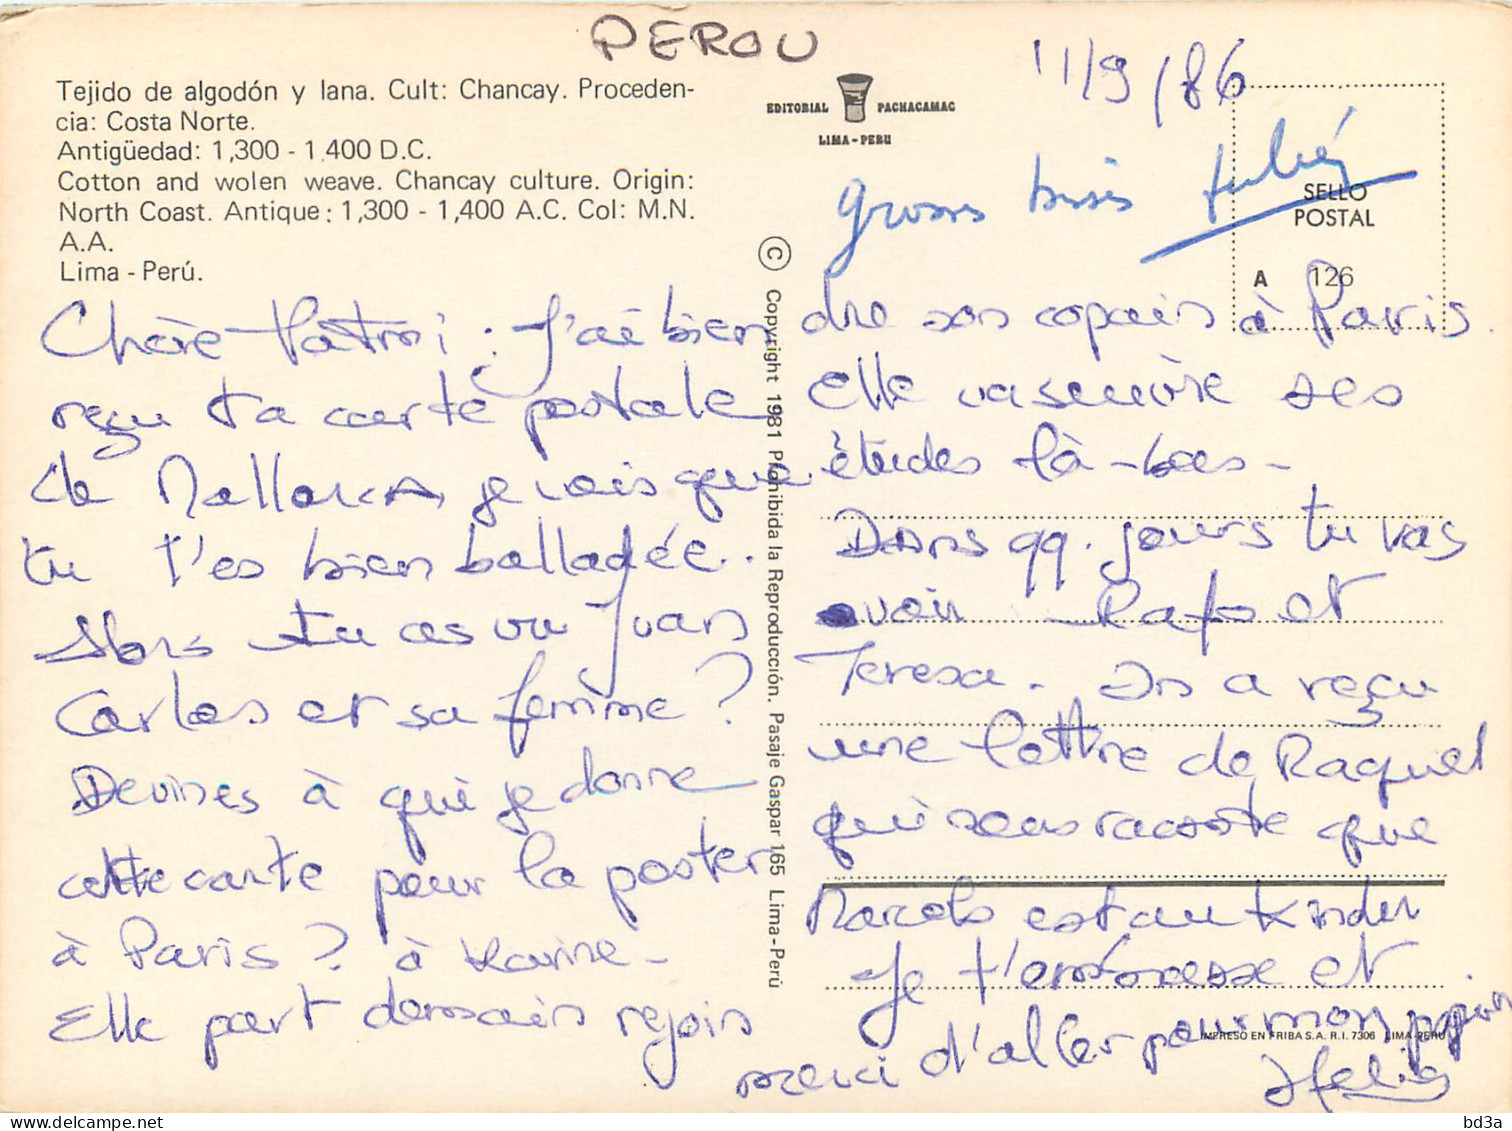 PEROU
11/9/86
Tejido de algodón y lana. Cult: Chancay. Proceden-
cia: Costa Norte.
Antigüedad: 1,300 - 1.400 D.C.
Cotton and wolen weave. Chancay culture. Origin:
North Coast. Antique: 1,300 - 1,400 A.C. Col: M.N.
A.A.
Lima - Perú.
EDITORIAL PACHACAMAC
LIMA - PERU
SELLO
POSTAL
A 126
Chère Patrri : J'ai bien
reçu ta carte postale
de Mallorca je vois que
tu t'es bien balladée.
Alors tu as vu Juan
Carlos et sa femme ?
Devines à qui je donne
cette carte pour la poster
à Paris ? à Karine -
Elle part demain rejoin
© Copyright 1981 Prohibida la Reproducción. Pasaje Gaspar 165 Lima-Perú
dre son copain à Paris.
Elle va suivre ses
études là-bas -
Dans qq. jours tu vas
avoir Rafo et
Teresa. On a reçu
une lettre de Raquel
qui nous raconte que
Marcelo est au Kinder
Je t'embrasse et
merci d'aller pour mon papin
IMPRESO EN FRIBA S.A. R.I. 7306 LIMA-PERU
bd3a